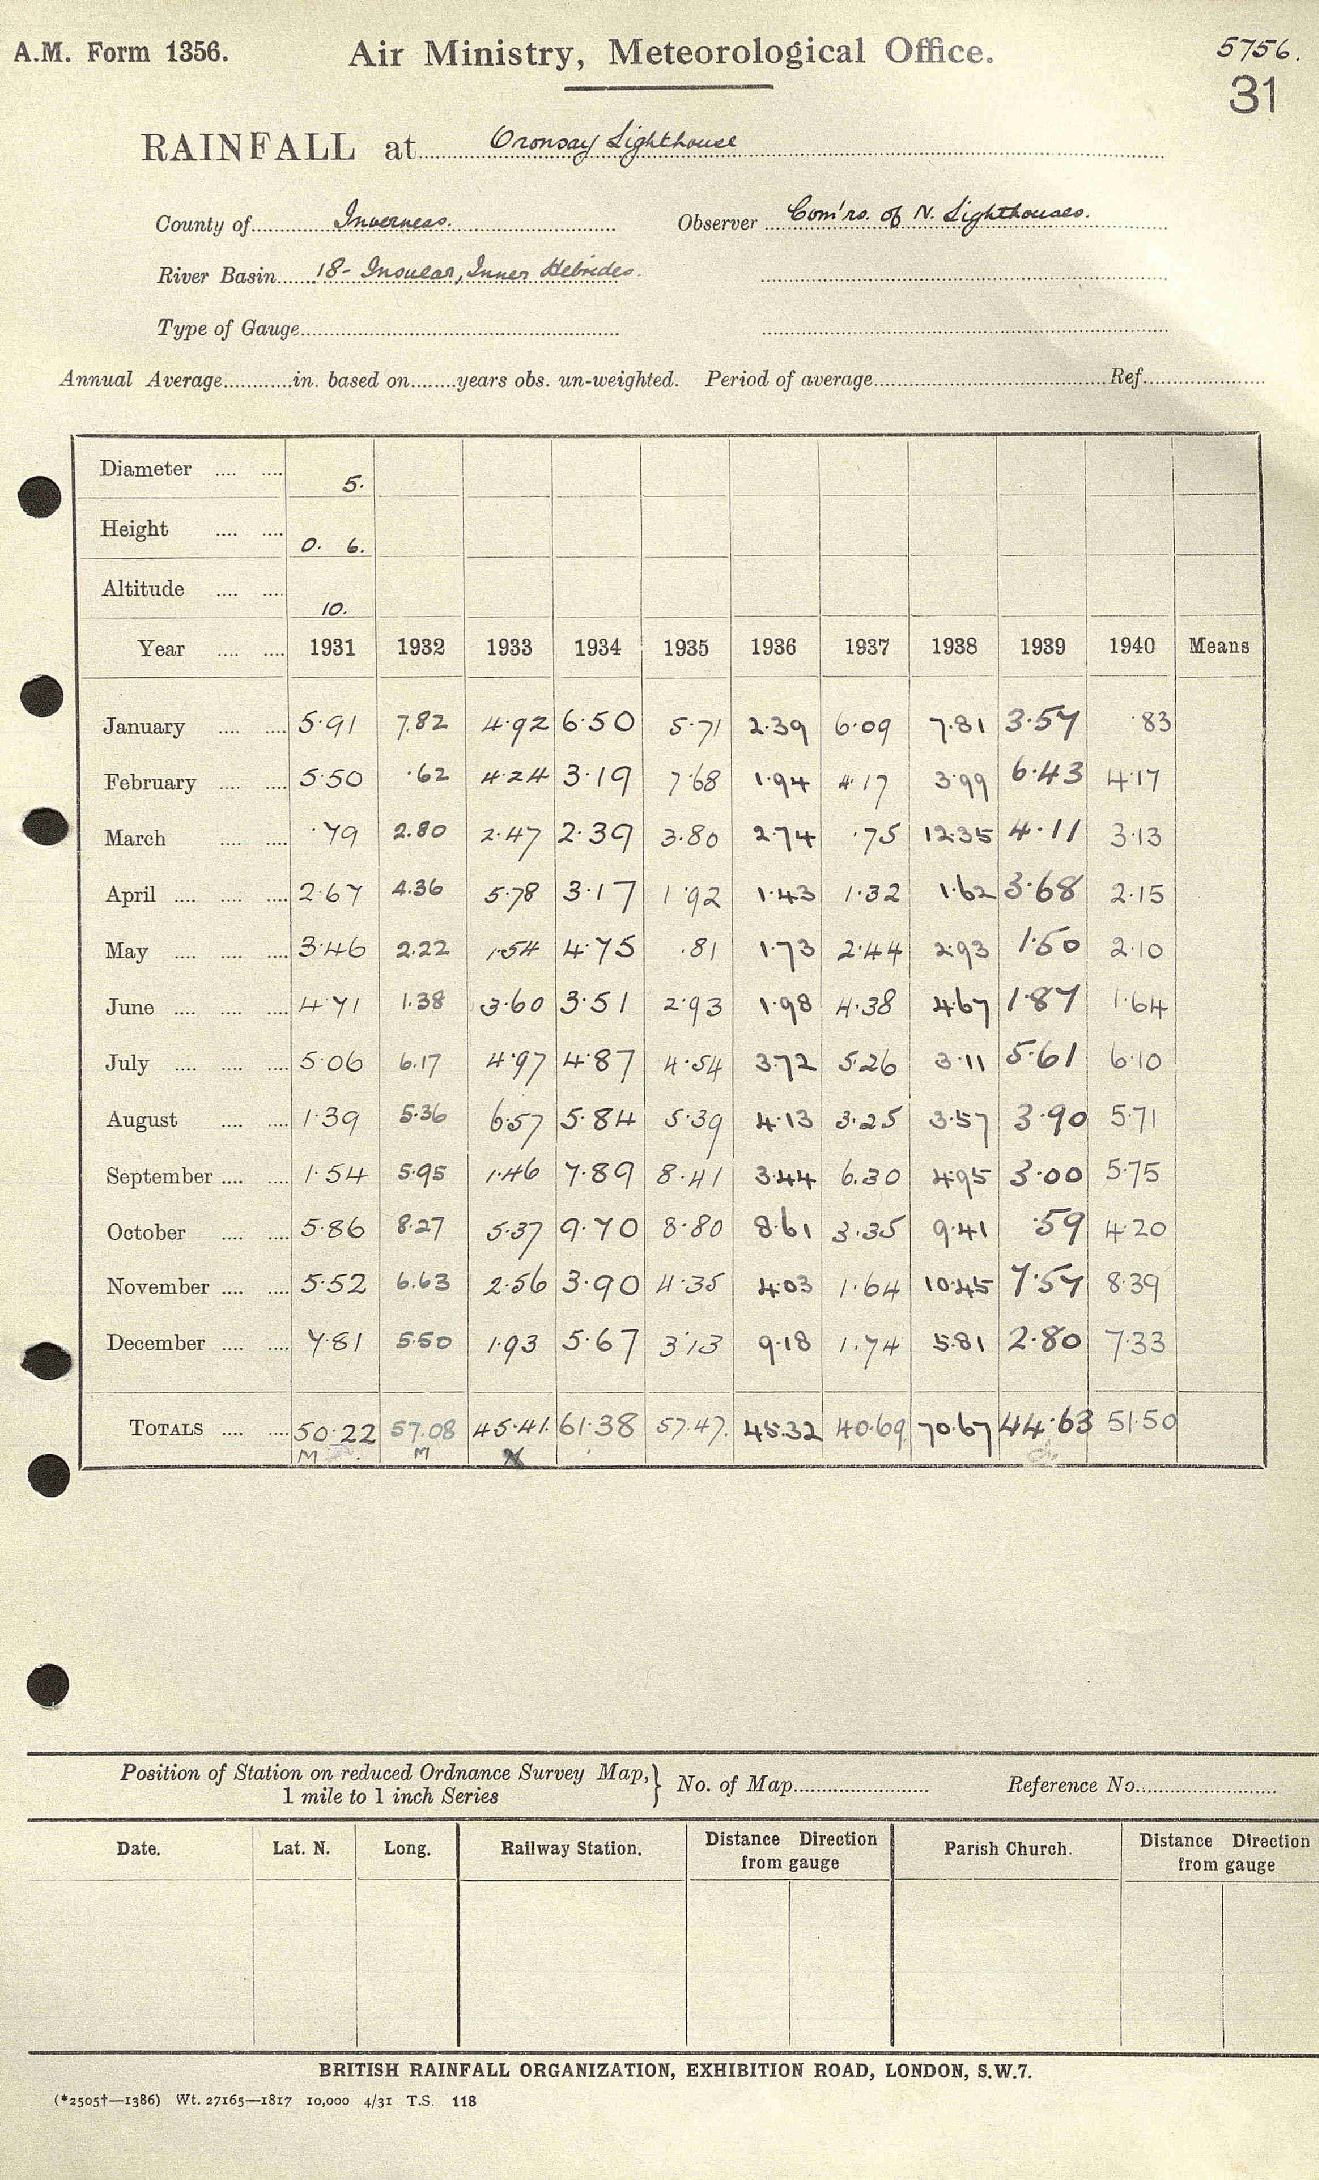 A.M. Form 1356. Air Ministry, Meteorological Office. 5756.
31
RAINFALL at Oronsay Lighthouse
County of Inverness. Observer Com'rs. of N. Lighthouses.
River Basin 18- Insular, Inner Hebrides.
Type of Gauge
Annual Average in. based on years obs. un-weighted. Period of average Ref.
Diameter 5.
Height 0. 6.
Altitude 10.
Year 1931 1932 1933 1934 1935 1936 1937 1938 1939 1940 Means
January 5.91 7.82 4.92 6.50 5.71 2.39 6.09 7.81 3.57 .83
February 5.50 .62 4.24 3.19 7.68 1.94 4.17 3.99 6.43 4.17
March .79 2.80 2.47 2.39 3.80 2.74 .75 12.35 4.11 3.13
April 2.67 4.36 5.78 3.17 1.92 1.43 1.32 1.62 3.68 2.15
May 3.46 2.22 1.54 4.75 .81 1.73 2.44 2.93 1.50 2.10
June 4.71 1.38 3.60 3.51 2.93 1.98 4.38 4.67 1.87 1.64
July 5.06 6.17 4.97 4.87 4.54 3.72 5.26 3.11 5.61 6.10
August 1.39 5.36 6.57 5.84 5.39 4.13 3.25 3.57 3.90 5.71
September 1.54 5.95 1.46 7.89 8.41 3.44 6.30 4.95 3.00 5.75
October 5.86 8.27 5.37 9.70 8.80 8.61 3.35 9.41 .59 4.20
November 5.52 6.63 2.56 3.90 4.35 4.03 1.64 10.45 7.57 8.39
December 7.81 5.50 1.93 5.67 3.13 9.18 1.74 5.81 2.80 7.33
TOTALS 50.22 57.08 45.41 61.38 57.47. 45.32 40.69 70.67 44.63 51.50
M M X
Position of Station on reduced Ordnance Survey Map, } No. of Map Reference No.
1 mile to 1 inch Series
Date. Lat. N. Long. Railway Station. Distance Direction Parish Church. Distance Direction
from gauge from gauge
BRITISH RAINFALL ORGANIZATION, EXHIBITION ROAD, LONDON, S.W.7.
(*2505†—1386) Wt. 27165—1817 10,000 4/31 T.S. 118